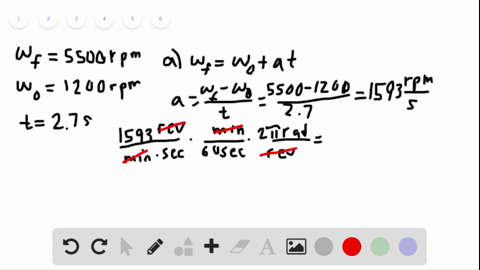 1 2 3 4 5 6
ωf = 5500 rpm
ω0 = 1200 rpm
t = 2.7 s
a) ωf = ω0 + a t
a = (ωf - ω0)/t = (5500 - 1200)/2.7 = 1593 rpm/s
1593 rev/(min · sec) · min/60 sec · 2π rad/rev =
A